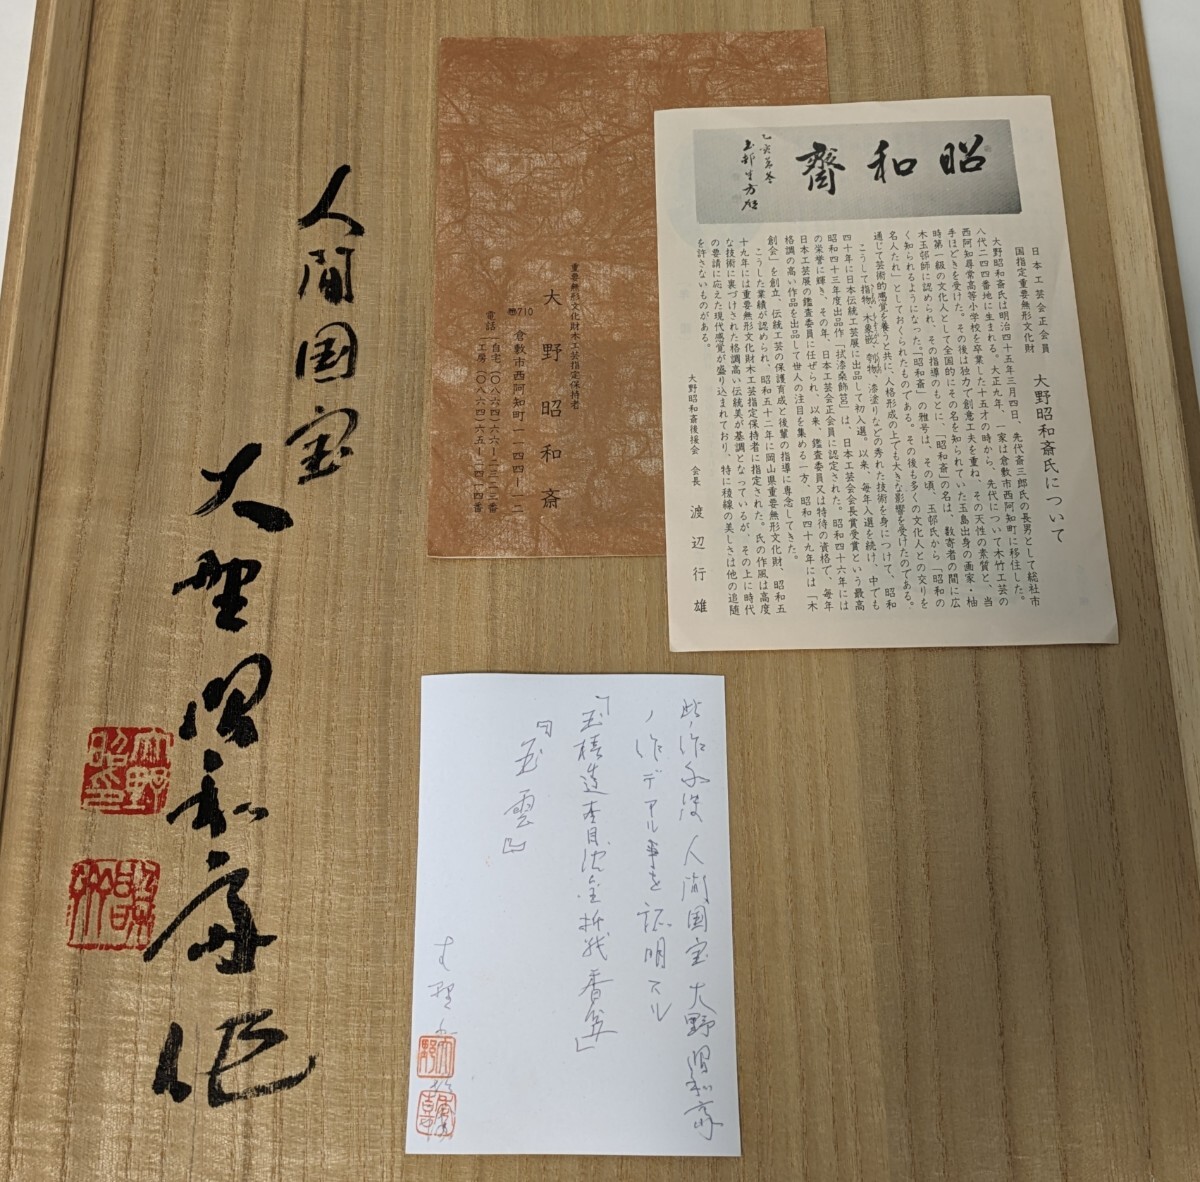 人間国宝
大野昭和斎作
重要無形文化財木工芸指定保持者
大野昭和斎
〒710 倉敷市西阿知町一一四四ー一二
電話
自宅(〇八六四)六六ー一二三三番
工房(〇八六四)六五ー二四一四番
昭和齋
日本工芸会正会員
国指定重要無形文化財
大野昭和斎氏について
大野昭和斎氏は明治四十五年三月四日、先代斎三郎氏の長男として総社市
八代二四四番地に生まれる。大正九年、一家は倉敷市西阿知町に移住した。
西阿知尋常高等小学校を卒業した十五才の時から、先代について木竹工芸の
手ほどきを受けた。その後は独力で創意工夫を重ね、その天性の素質と、当
時第一級の文化人として全国的にその名を知られていた玉島出身の画家・柚
木玉邨師に認められ、その指導のもとに、「昭和斎」の名は、数寄者の間に広
く知られるようになった。「昭和斎」の雅号は、その頃、玉邨氏から「昭和の
名人たれ」としておくられたものである。その後も多くの文化人との交りを
通じて芸術的感覚を養うと共に、人格形成の上でも大きな影響を受けたのである。
こうして指物、木象嵌、刳物、漆塗りなどの秀れた技術を身につけて、昭和
四十年に日本伝統工芸展に出品して初入選。以来、毎年入選を続け、中でも
昭和四十三年度出品作「拭漆桑飾筥」は、日本工芸会会長賞受賞という最高
の栄誉に輝き、その年、日本工芸会正会員に認定された。昭和四十六年には
日本工芸展の鑑査委員に任ぜられ、以来、鑑査委員又は特待の資格で、毎年
格調の高い作品を出品して世人の注目を集める一方、昭和四十九年には「木
創会」を創立、伝統工芸の保護育成と後輩の指導に専念してきた。
こうした業績が認められ、昭和五十二年に岡山県重要無形文化財、昭和五
十九年には重要無形文化財木工芸指定保持者に指定された。氏の作風は高度
な技術に裏づけされた格調高い伝統美が基調となっているが、その上に時代
の要請に応えた現代感覚が盛り込まれており、特に稜線の美しさは他の追随
を許さないものがある。
大野昭和斎後援会 会長 渡辺行雄
人間国宝大野昭和斎
ノ作デアル事を証明スル
『玉雲』